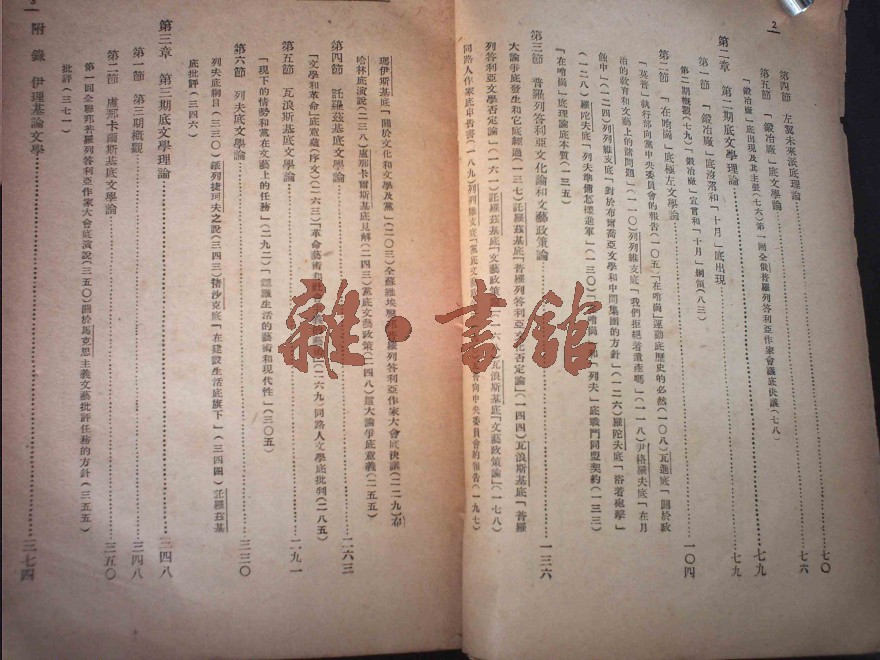 2
第四節 左翼未來派底理論……七〇
第五節 「鍛冶廠」底文學論……七六
「鍛冶廠」底出現及其主張(七六)第一囘全俄普羅列答利亞作家會議底決議(七八)
第二章 第二期底文學理論……七九
第一節 「鍛冶廠」底沒落和「十月」底出現……七九
第二期概觀(七九)「鍛冶廠」宣言和「十月」綱領(八三)
第二節 「在哨崗」底極左文學論……一〇四
「英普」執行部向黨中央委員會的報告(一〇五)「在哨崗」運動底歷史的必然(一〇八)瓦進底「關於政
治的敎育和文藝上的諸問題」(一一〇)列列維支底「我們拒絕着遺產嗎」(一一八)尹格羅夫底「在月
蝕中」(一二四)列列維支底「對於布爾喬亞文學和中間集團的方針」(一二六)羅陀夫底「浴着砲擊」
(一二八)羅陀夫底「列夫準備怎樣進軍」(一三〇)「在哨崗」和「列夫」底戰鬥同盟契約(一三三)
「在哨崗」底理論底本質(一三五)
第三節 普羅列答利亞文化論和文藝政策論……一三六
大論爭底發生和它底經過(一三七)託羅茲基底「普羅列答利亞文化否定論」(一四四)瓦浪斯基底「普羅
列答利亞文學否定論」(一六一)託羅茲基底「文藝政策論」(一六八)瓦浪斯基底「文藝政策論」(一七八)
同路人作家底申告書(一八九)列列維支底「黨底文藝政策
向中央委員會的報告(一九七)
瑪伊斯基底「關於文化和文學及黨」(二〇三)全蘇維埃
普羅列答利亞作家大會底決議(二二九)布
哈林底演說(二三八)盧那卡爾斯基底見解(二四三)黨底文藝政策(二四八)這大論爭底意義(二五五)
第四節 託羅茲基底文學論……二六三
「文學和革命」底意蘊(序文)(二六三)「革命藝術和社
的藝術」(二六九)同路人文學底批判(二八五)
第五節 瓦浪斯基底文學論……二九一
「現下的情勢和黨在文藝上的任務」(二九二)「認識生活的藝術和現代性」(三〇五)
第六節 列夫底文學論……三三〇
列夫底綱目(三三〇)鐵列捷珂夫之說(三四三)褚沙克底「在建設生活底旗下」(三四四)託羅茲基
底批評(三四六)
第三章 第三期底文學理論……三四八
第一節 第三期概觀……三四八
第二節 盧那卡爾斯基底文學論……三五〇
第一囘全聯邦普羅列答利亞作家大會底演說(三五〇)關於馬克思主義文藝批評任務的方針(三五五)
批評(三七一)
附錄 伊理基論文學……三七四
3
雜·書館